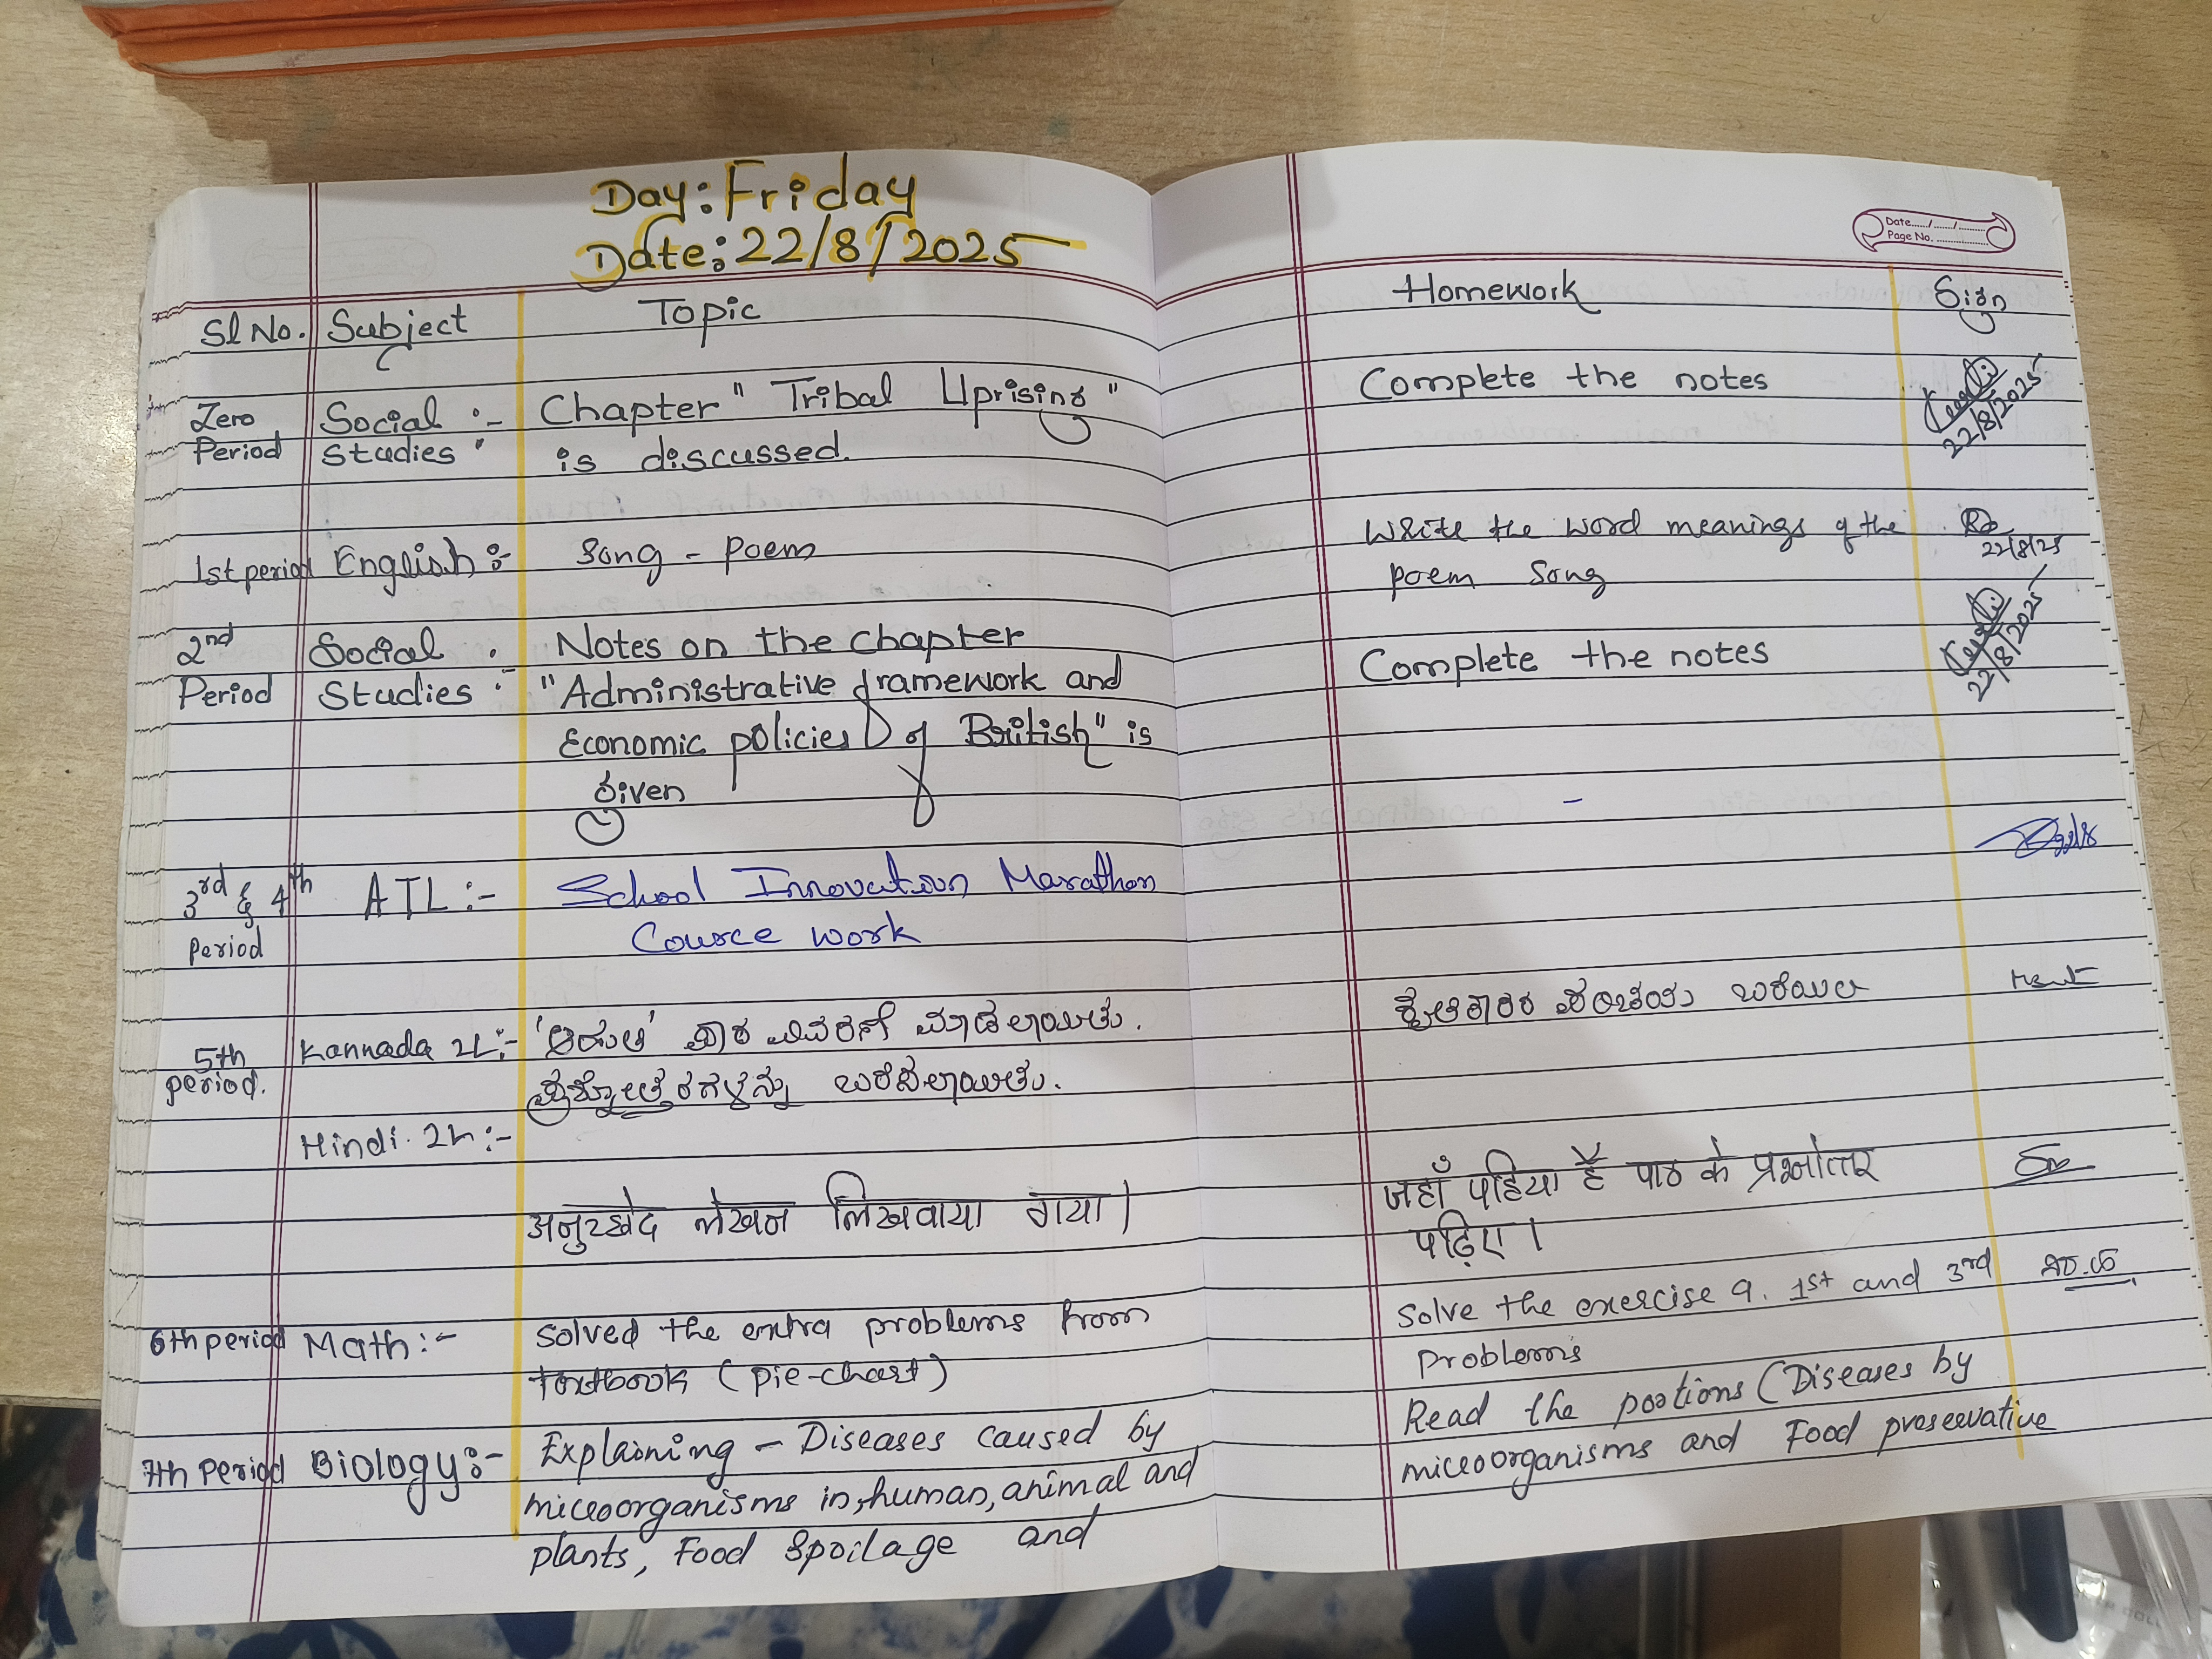 Day: Friday
Date: 22/8/2025
Date..../..../....
Page No. ..............
Sl No. Subject Topic Homework Sign
Zero Social :- Chapter "Tribal Uprising" Complete the notes
Period Studies is discussed. 22/8/2025
1st period English :- Song - Poem Write the word meanings of the
22/8/25
poem Song
2nd Social Notes on the chapter Complete the notes
Period Studies :- "Administrative framework and 22/8/2025
Economic policies of British" is
given
-
3rd & 4th ATL :- School Innovation Marathon
period Cource work
5th Kannada 2L :- ಪಾಠ ವಿವರಣೆ ಮಾಡಲಾಯಿತು.
period. ಪ್ರಶ್ನೋತ್ತರಗಳನ್ನು ಬರೆಸಲಾಯಿತು.
ಬರೆಯಿರಿ
Hindi 2L :-
अनुच्छेद लेखन लिखवाया गया। जहाँ पहिया है पाठ के प्रश्नोत्तर
पढ़िए।
6th period Math :- Solved the extra problems from Solve the exercise 9. 1st and 3rd
textbook (pie-chart) problems
7th Period Biology :- Explaining - Diseases caused by Read the portions (Diseases by
microorganisms in, human, animal and microorganisms and Food preservative
plants, Food Spoilage and